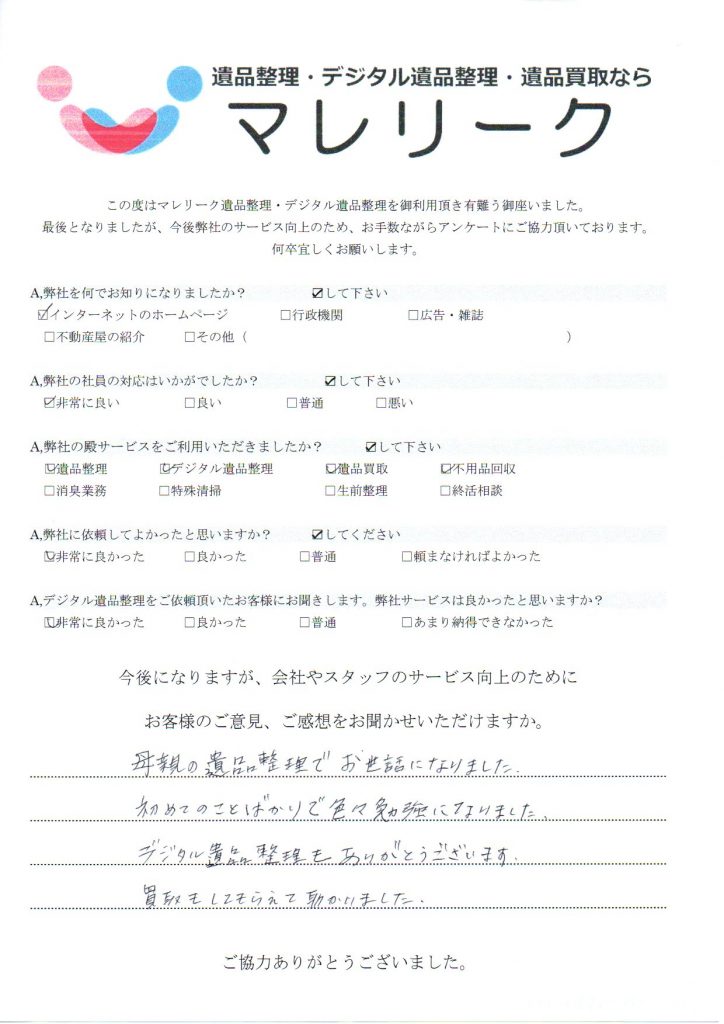 遺品整理・デジタル遺品整理・遺品買取なら
マレリーク
この度はマレリーク遺品整理・デジタル遺品整理を御利用頂き有難う御座いました。
最後となりましたが、今後弊社のサービス向上のため、お手数ながらアンケートにご協力頂いております。
何卒宜しくお願いします。
A,弊社を何でお知りになりましたか？ ☑して下さい
☑インターネットのホームページ □行政機関 □広告・雑誌
□不動産屋の紹介 □その他（ ）
A,弊社の社員の対応はいかがでしたか？ ☑して下さい
☑非常に良い □良い □普通 □悪い
A,弊社の殿サービスをご利用いただきましたか？ ☑して下さい
☑遺品整理 ☑デジタル遺品整理 ☑遺品買取 ☑不用品回収
□消臭業務 □特殊清掃 □生前整理 □終活相談
A,弊社に依頼してよかったと思いますか？ ☑してください
☑非常に良かった □良かった □普通 □頼まなければよかった
A,デジタル遺品整理をご依頼頂いたお客様にお聞きします。弊社サービスは良かったと思いますか？
☑非常に良かった □良かった □普通 □あまり納得できなかった
今後になりますが、会社やスタッフのサービス向上のために
お客様のご意見、ご感想をお聞かせいただけますか。
母親の遺品整理でお世話になりました.
初めてのことばかりで色々勉強になりました.
デジタル遺品整理もありがとうございます.
買取もしてもらえて助かりました.
ご協力ありがとうございました。